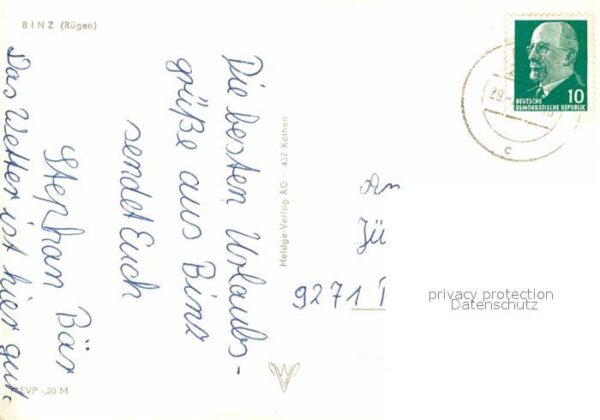 BINZ (Rügen)
Die besten Urlaubs-
grüße aus Binz
sendet Euch
Stephan Bär
Das Wetter ist hier gut.
EVP -,20 M
Heldge-Verlag KG · 437 Köthen
DEUTSCHE
DEMOKRATISCHE REPUBLIK
10
29.
c
An
Jü
9271
privacy protection
Datenschutz